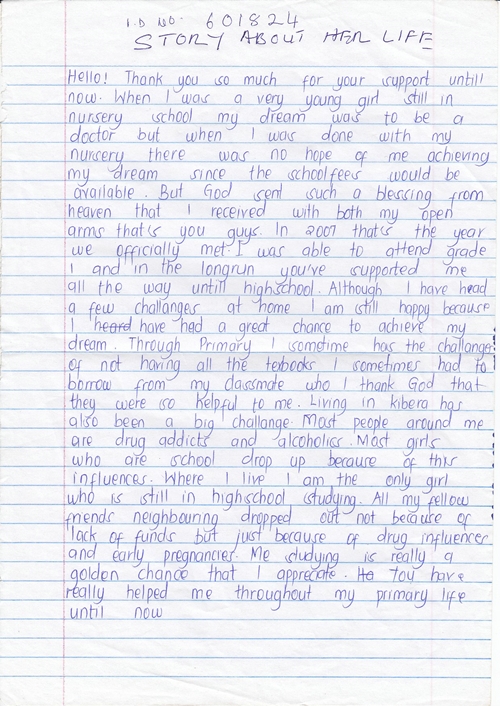 I.D NO. 601824
STORY ABOUT HER LIFE
Hello! Thank you so much for your support until
now. When I was a very young girl still in
nursery school my dream was to be a
doctor but when I was done with my
nursery there was no hope of me achieving
my dream since the schoolfees would be
available. But God sent such a blessing from
heaven that I received with both my open
arms that's you guys. In 2007 that's the year
we officially met. I was able to attend grade
1 and in the longrun you've supported me
all the way until highschool. Although I have had
a few challanges at home I am still happy because
I heard have had a great chance to achieve my
dream. Through Primary I sometime has the challanges
of not having all the texbooks I sometimes had to
borrow from my classmate who I thank God that
they were so helpful to me. Living in kibera has
also been a big challange. Most people around me
are drug addicts and alcoholics. Most girls
who are school drop up because of this
influences. Where I live I am the only girl
who is still in highschool studying. All my fellow
friends neighbouring dropped out not because of
lack of funds but just because of drug influences
and early pregnancies. Me studying is really a
golden chance that I apprecate. Ha You have
really helped me throughout my primary life
until now